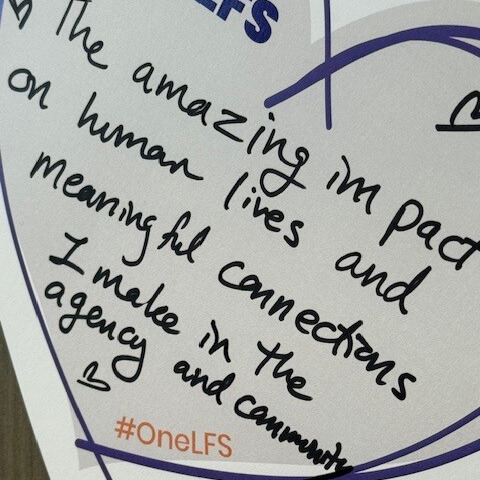 LFS
The amazing impact
on human lives and
meaningful connections
I make in the
agency and community
#OneLFS